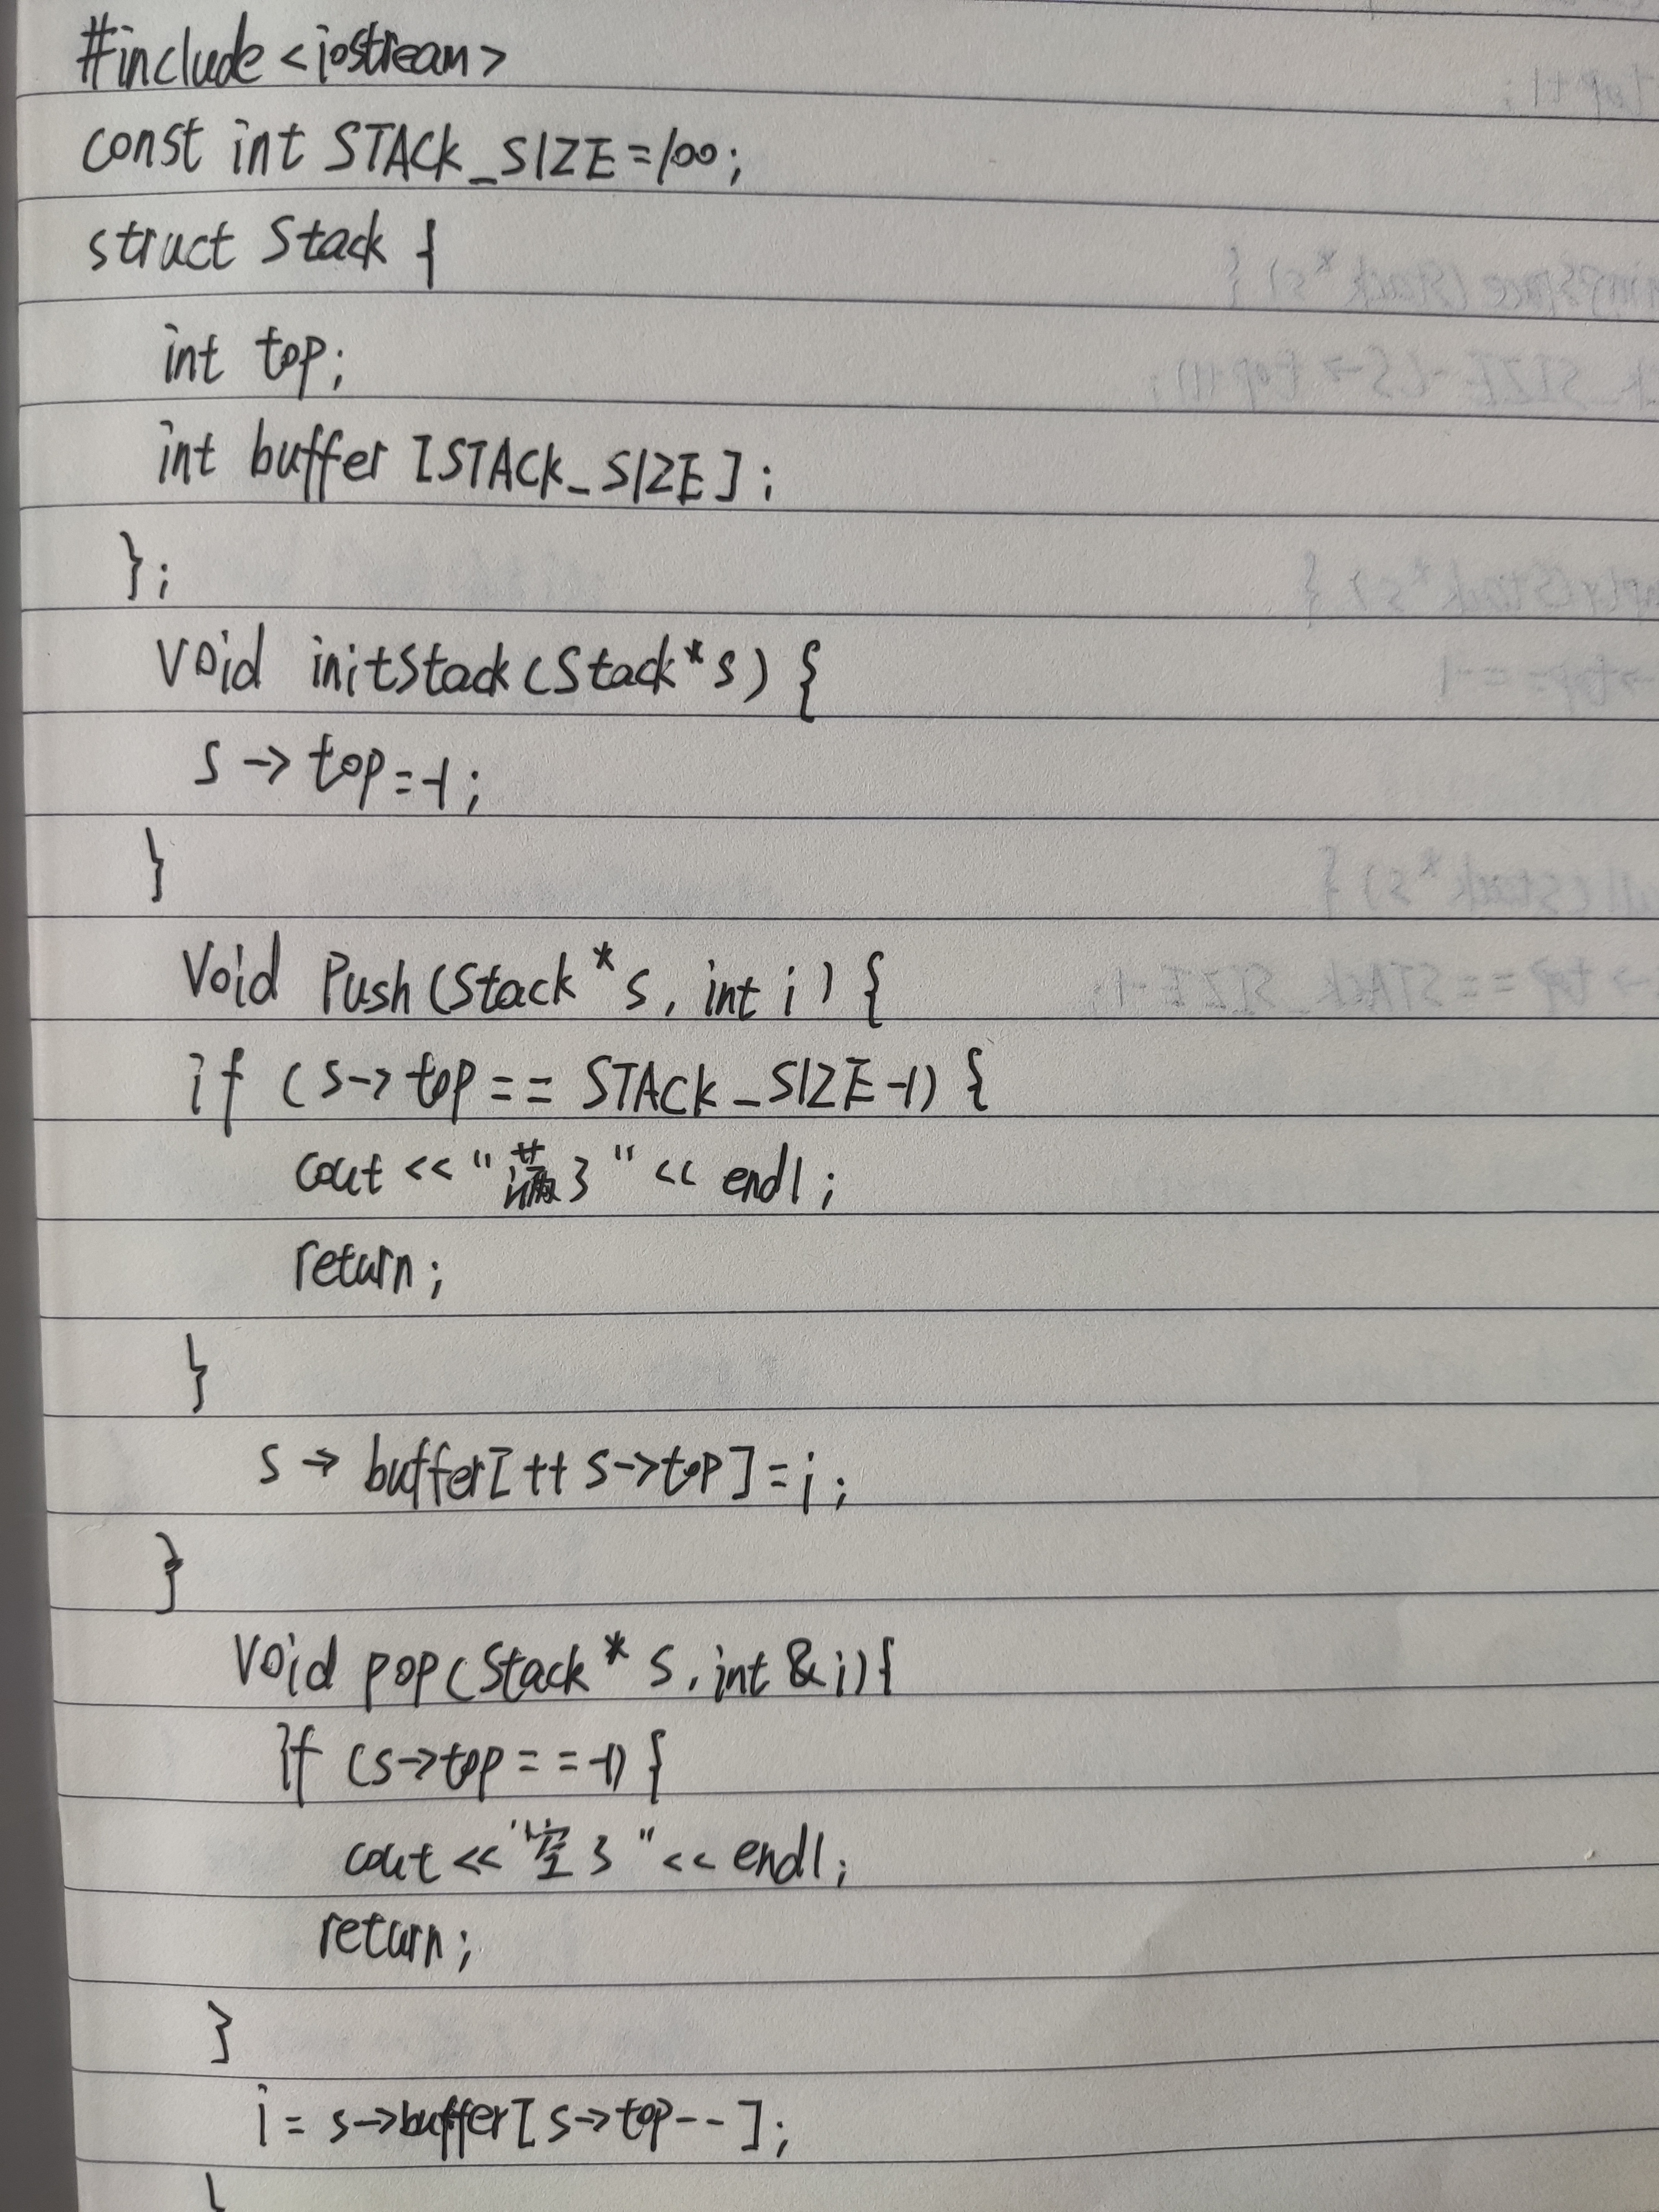 #include <iostream>
const int STACK_SIZE=100;
struct Stack {
int top;
int buffer [STACK_SIZE];
};
void initStack(Stack*s) {
s -> top=-1;
}
void Push(Stack*s, int i) {
if (s->top== STACK_SIZE-1) {
cout << "满了" << endl;
return;
}
s -> buffer[++ s->top]=i;
}
void pop(Stack* s, int &i){
if (s->top==-1) {
cout << "空了" << endl;
return;
}
i= s->buffer[s->top--];